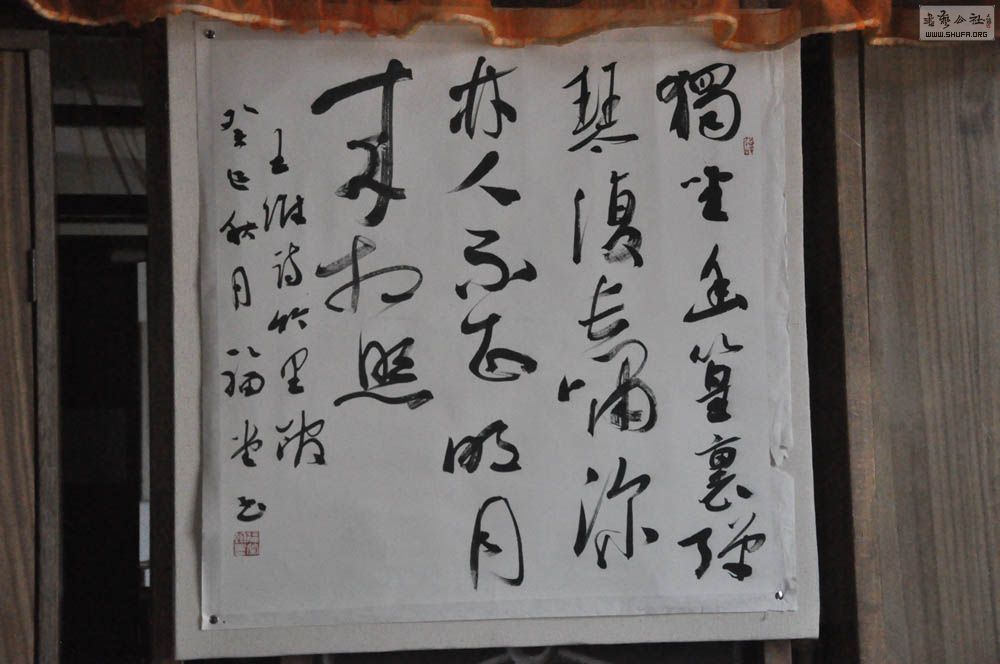 獨坐幽篁裏彈
琴復長嘯深
林人不知明月
來相照
王維詩竹里館
癸巳秋月福堂书
書藝公社
WWW.SHUFA.ORG